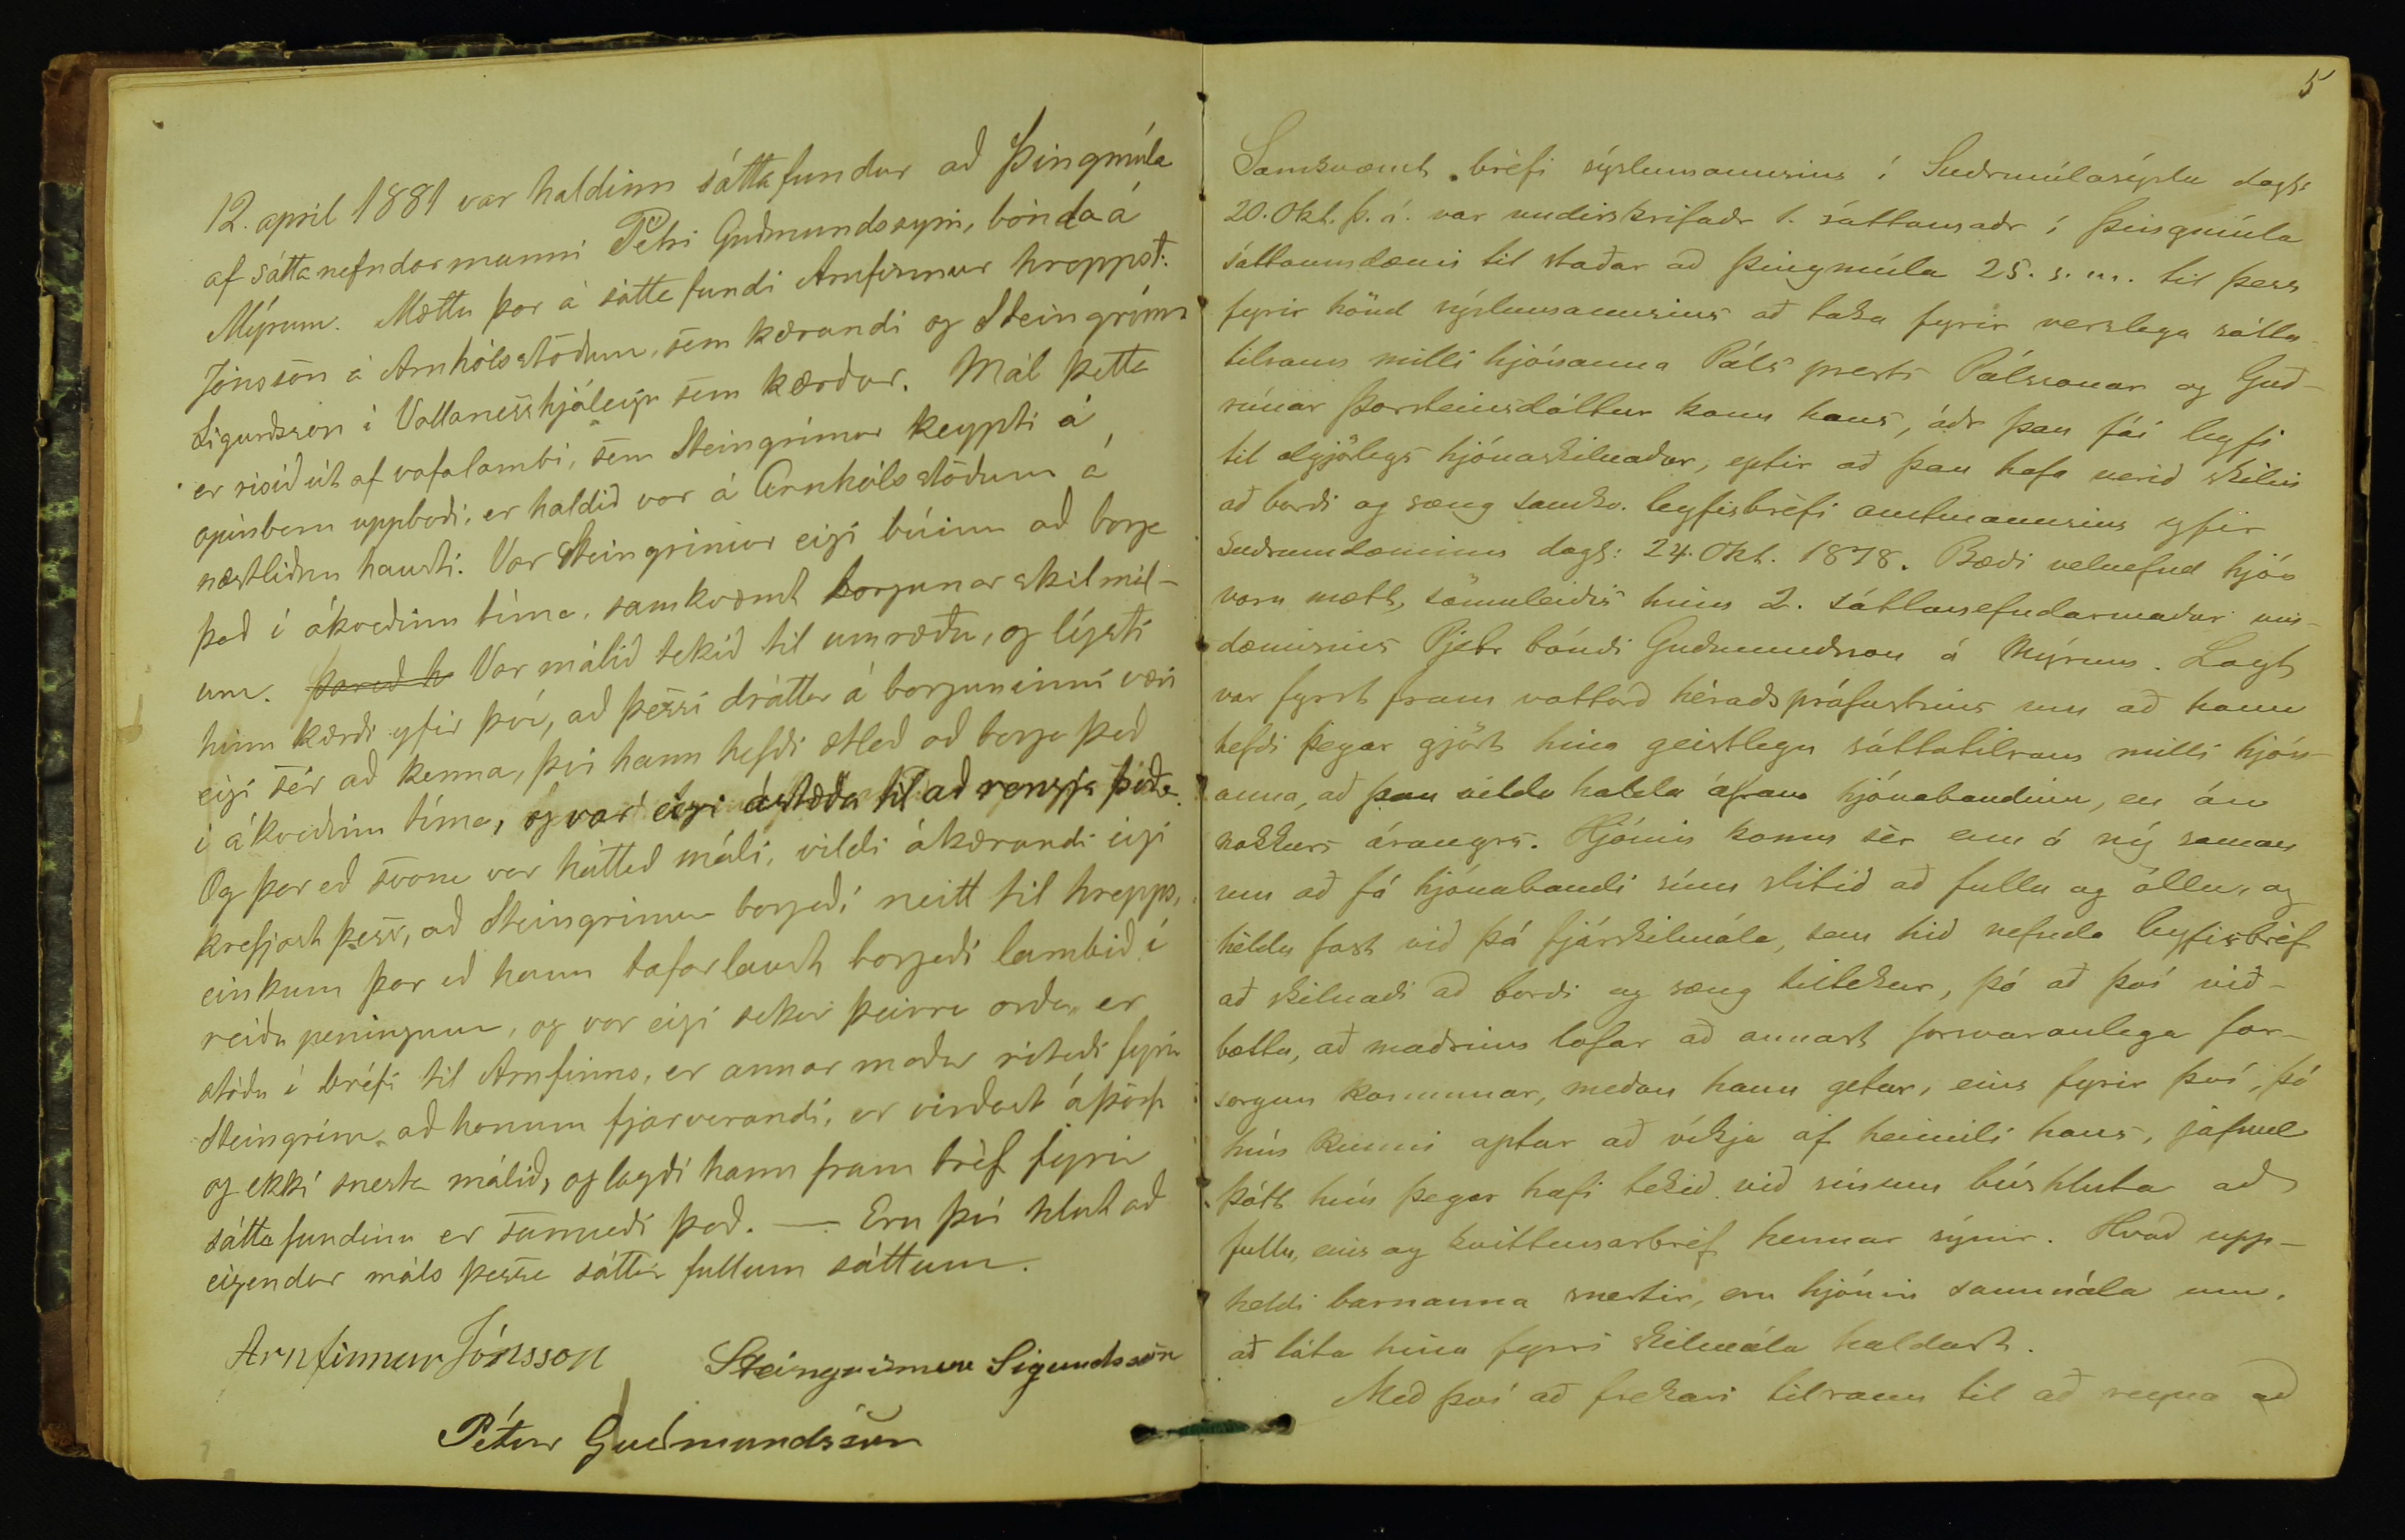 12. april 1881 var haldinn sáttafundur að Þingmúla
af sáttanefndarmanni Pétri Guðmundssyni, bónda á
Mýrum. Mættu þar á sáttafundi Arnfinnur hreppst.
Jónsson á Arnhólsstöðum, sem kærandi og Steingrímr
Sigurðsson í Vallanesshjáleigu sem kærður. Mál þetta
er risið út af vafalambi, sem Steingrímur keypti á
opinberu uppboði, er haldið var á Arnhólsstöðum á
næstliðnu hausti. Var Steingrímur eigi búinn að borga
það í ákveðinn tíma, samkvæmt borgunarskilmál-
um. Var málið tekið til umræðu, og lýsti
hinn kærði yfir því, að þessi dráttur á borguninni væri
eigi sér að kenna, því hann hefði ætlað að borga það
í ákveðinn tíma, og var eigi ástæða til að rengja það.
Og þar eð svona var háttað máli, vildi ákærandi eigi
krefjast þess, að Steingrímur borgaði neitt til hrepps,
einkum þar eð hann tafarlaust borgaði lambið í
reiðu peningum, og var eigi sekur þeirra orða, er
stóðu í bréfi til Arnfinns, er annar maður ritaði fyrir
Steingrím, að honum fjarverandi, er virðast áþörf
og ekki snerta málið, og lagði hann fram bréf fyrir
sáttafundinn er sannaði það. — Eru því hlutað
eigendur máls þessa sáttir fullum sáttum.
Arnfinnur Jónsson Steingrímur Sigurðsson
Pétur Guðmundsson
5
Samkvæmt bréfi sýslumannsins í Suðrmúlasýslu dags:
20. Okt. þ. á. var undirskrifaðr 1. sáttamaðr í Þingmúla
sáttaumdæmi til staðar að Þingmúla 25. s. m. til þess
fyrir hönd sýslumannsins að taka fyrir verslega sátta-
tilraun milli hjónanna Páls prests Pálssonar og Guð-
rúnar Þorsteinsdóttur konu hans, áðr þau fái leyfi
til algjörlegs hjónaskilnaðar, eptir að þau hafa verið skilin
að borði og sæng samkv. leyfisbréfi amtmannsins yfir
Suðrumdæminu dags: 24. Okt. 1878. Bæði velnefnd hjón
voru mætt, sömuleiðis hinn 2. sáttanefndarmaður um-
dæmisins Pjetr bóndi Guðmundsson á Mýrum. Lagt
var fyrst fram vottorð héraðsprófastsins um að hann
hefði þegar gjört hina geistlegu sáttatilraun milli hjón-
anna, að þau vildu halda áfram hjónabandinu, en án
nokkurs árangrs. Hjónin komu sér enn á ný saman
um að fá hjónabandi sínu slitið að fullu og öllu, og
héldu fast við þá fjárskilmála, sem hið nefnda leyfisbréf
að skilnaði að borði og sæng tiltekur, þó að því við-
bættu, að maðrinn lofar að annast forsvaranlega for-
sorgun konunnar, meðan hann getur, eins fyrir því, þó
hún kunni aptur að víkja af heimili hans, jafnvel
þótt hún þegar hafi tekið við sínum búshluta að
fullu, eins og kvittunarbréf hennar sýnir. Hvað upp-
heldi barnanna snertir, eru hjónin sammála um,
að láta hina fyrri skilmála haldast.
Með því að frekari tilraun til að reyna að